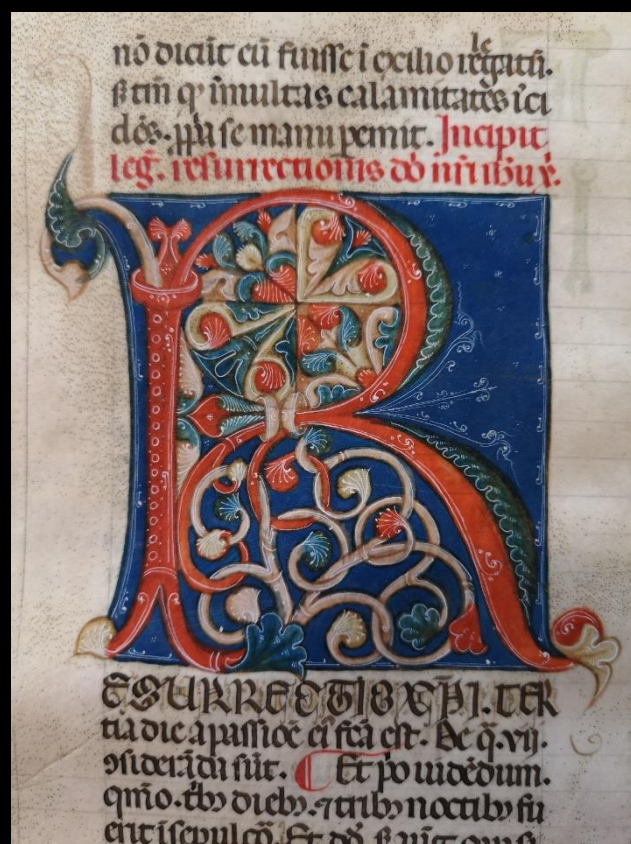 nō dicūt eū fuisse ī exilio relegatū.
s tm̄ qꝫ ī multas calamitates īci
dēs. ꝓp̄a se manu pemit. Incipit
leḡ. resurrectionis dō nr̄i ihu xp̄.
R
ESURRECTIO XPI. TER
tia die a passiōe eī fc̄a est. De q̄. vij.
ꝯsiderāda sūt. ¶ Et po uidēdum.
qmō. tbꝫ diebꝫ. ⁊ tribꝫ noctibꝫ fu
erit ī sepulcō. Et